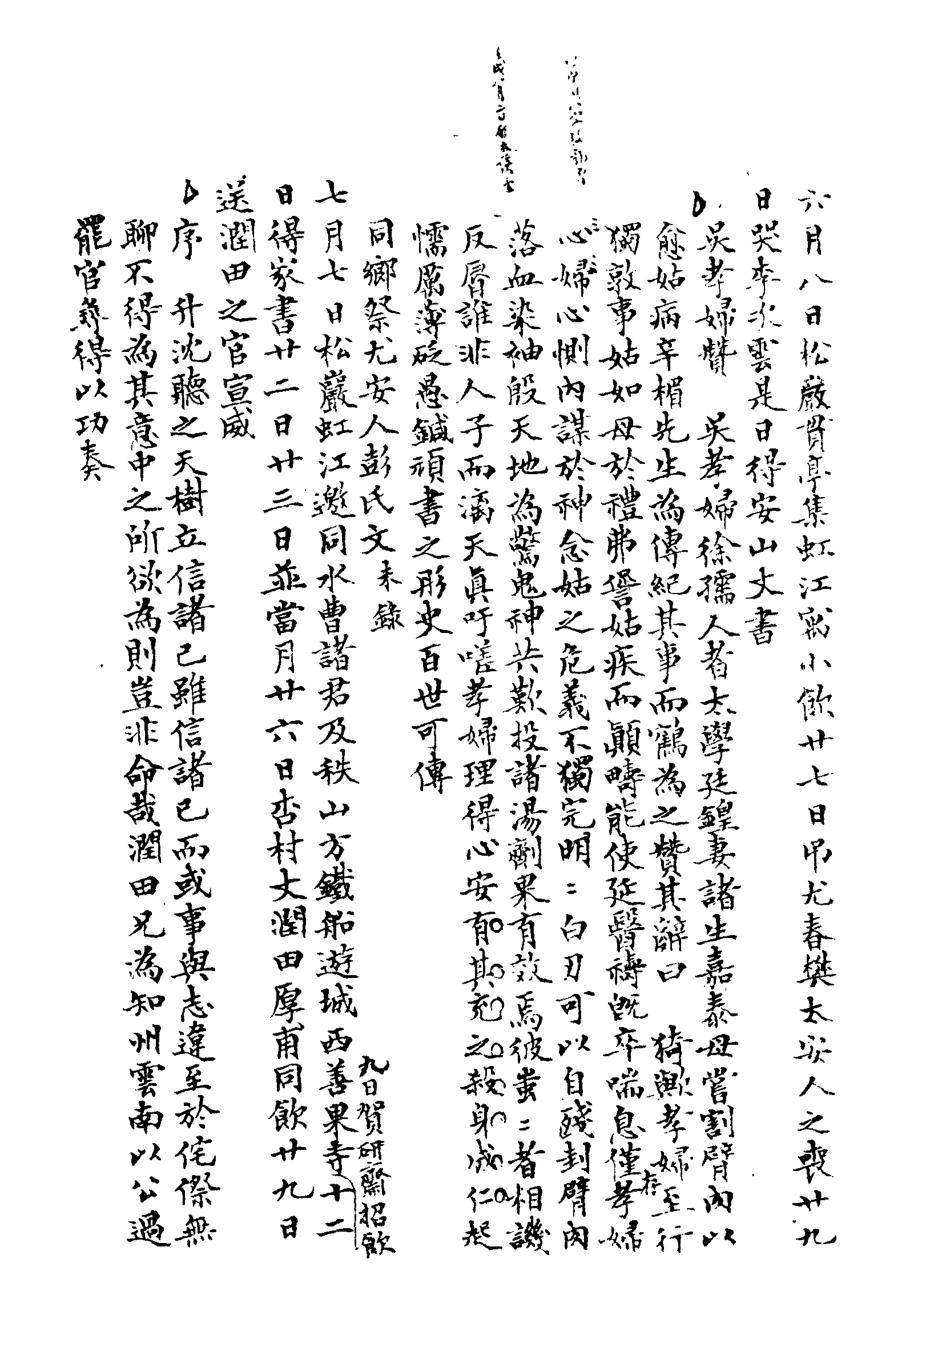 六月八日松巖貫亭集虹江寓小飲廿七日吊尤春樊太安人之喪廿九
日哭李次雲是日得安山丈書
吳孝婦贊 吳孝婦徐孺人者太學廷鍠妻諸生嘉泰母嘗割臂肉以
愈姑病辛楣先生為傳紀其事而鶴為之贊其辭曰 猗歟孝婦至行
獨敦事姑如母於禮弗諐姑疾而顛疇能使延醫禱既卒喘息僅存孝婦
心婦心惻內謀於神念姑之危義不獨完明二白刃可以自殘刲臂肉
落血染袖殷天地為驚鬼神共歎投諸湯劑果有效焉彼蚩二者相譏
反脣誰非人子而漓天真吁嗟孝婦理得心安有其充之殺身成仁起
懦厲薄砭愚鍼頑書之彤史百世可傳
同鄉祭尤安人彭氏文未錄
九日賀研齋招飲
七月七日松巖虹江邀同水曹諸君及秩山方鐵船遊城西善果寺十二
日得家書廿二日廿三日並當月廿六日杏村丈潤田厚甫同飲廿九日
送潤田之官宣威
序 升沈聽之天樹立信諸己雖信諸己而或事與志違至於侘傺無
聊不得為其意中之所欲為則豈非命哉潤田兄為知州雲南以公過
罷官尋得以功奏